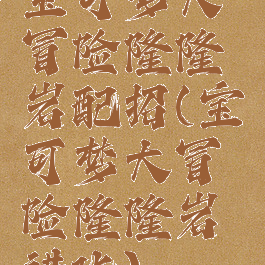 宝可梦大
冒险隆隆
岩配招(宝
可梦大冒
险隆隆岩